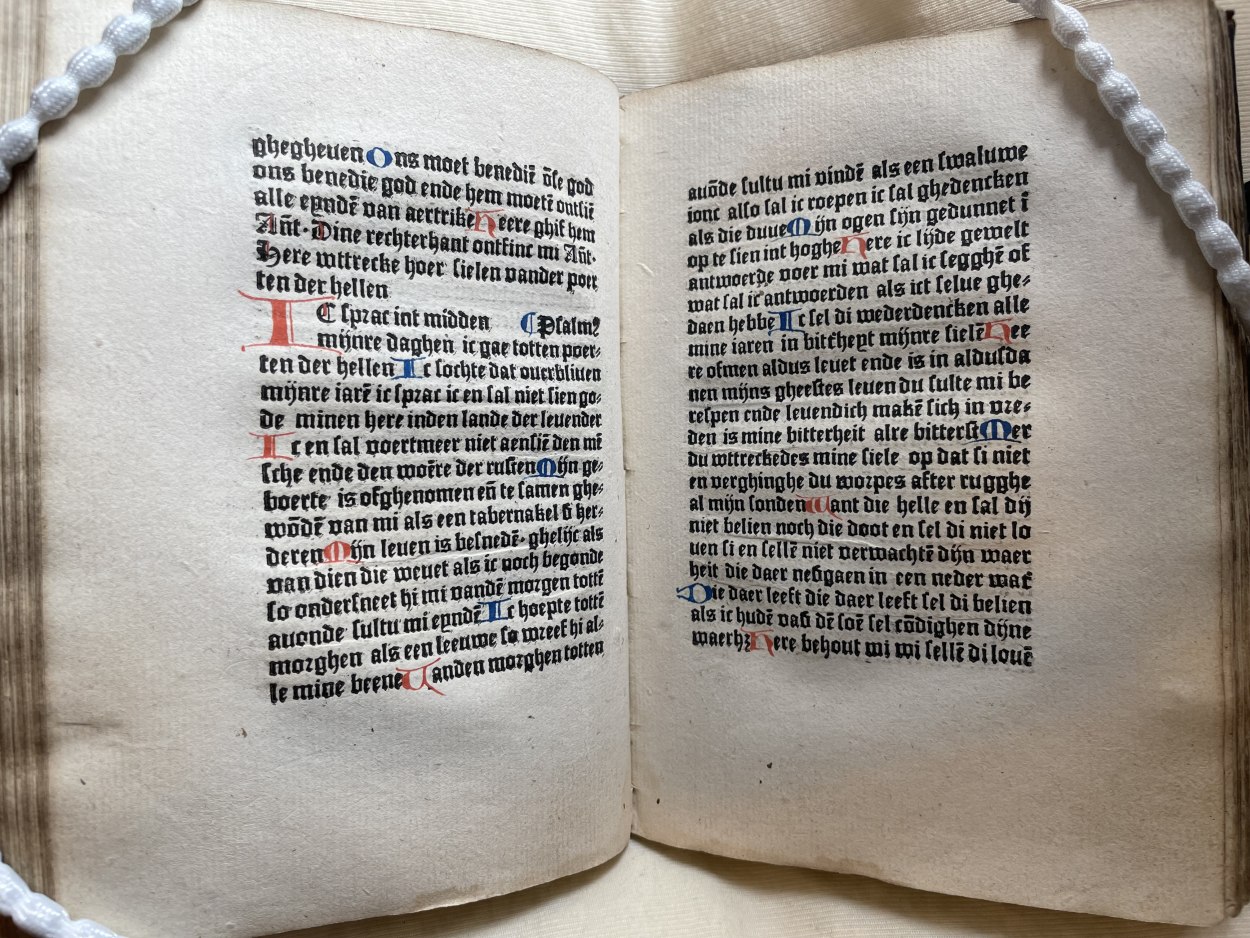 ghegheuen Ons moet benediē ōse god
ons benedie god ende hem moetē ontsiē
alle eyndē van aertrike Heere ghif hem
Añt· Dine rechterhant ontfinc mi Añt·
Here wttrecke hoer sielen vander poer
ten der hellen
IC sprac int midden Psalmꝰ
mijnre daghen ic gae totten poer⸗
ten der hellen Ic sochte dat ouerbliuen
mijnre iarē ic sprac ic en sal niet sien go⸗
de minen here inden lande der leuender
Ic en sal voertmeer niet aensiē den mē
sche ende den woēre der rusten Mijn ge⸗
boerte is ofghenomen eñ te samen ghe⸗
wōdē van mi als een tabernakel đ her⸗
deren Mijn leuen is besnedē· ghelijc als
van dien die weuet als ic noch begonde
so ondersneet hi mi vandē morgen tottē
auonde sultu mi eyndē Ic hoepte tottē
morghen als een leeuwe so wreef hi al⸗
le mine beene Uanden morghen totten
auōde sultu mi vindē als een swaluwe
ionc also sal ic roepen ic sal ghedencken
als die duue Mijn ogen sijn gedunnet ī
op te sien int hoghe Here ic lijde gewelt
antwoerde voer mi wat sal ic segghē of
wat sal ic antwoerden als ict selue ghe⸗
daen hebbe Ic sel di wederdencken alle
mine iaren in bitt'heyt mijnre sielē Hee
re ofmen aldus leuet ende is in aldusda
nen mijns gheestes leuen du sulte mi be
respen ende leuendich makē sich in vre⸗
den is mine bitterheit alre bitterst Mer
du wttreckedes mine siele op dat si niet
en verghinghe du worpes after rugghe
al mijn sonden Want die helle en sal dij
niet belien noch die doot en sel di niet lo
uen si en sellē niet verwachtē dijn waer
heit die daer nedgaen in een neder wat'
Die daer leeft die daer leeft sel di belien
als ic hudē vad' dē soē sel cōdighen dijne
waerhꝫ Here behout mi wi sellē di louē